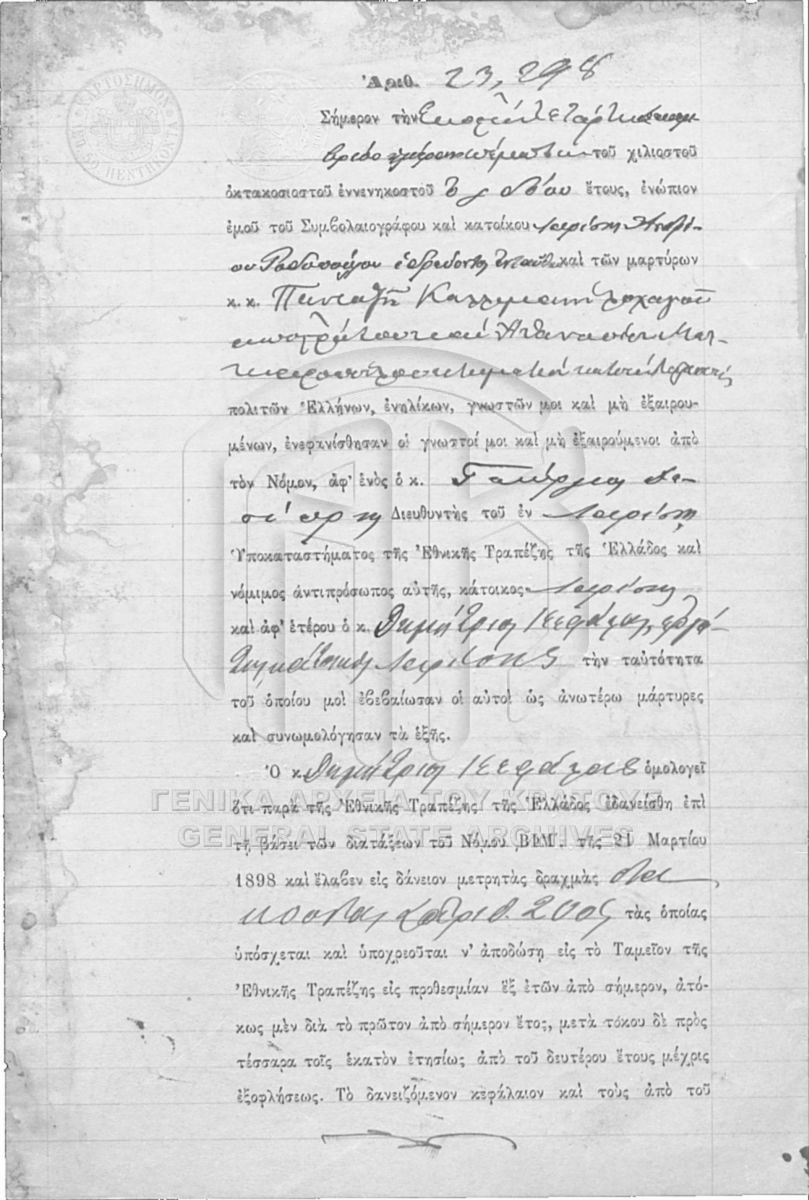 ΧΑΡΤΟΣΗΜΟΝ
ΛΕΠ. 50. ΠΕΝΤΗΚΟΝΤΑ
Ἀριθ. 23,298
Σήμερον τὴν Εἰκοστὴν τετάρτην
τοῦ χιλιοστοῦ
ὀκτακοσιοστοῦ ἐννενηκοστοῦ ὀγδόου ἔτους, ἐνώπιον
ἐμοῦ τοῦ Συμβολαιογράφου καὶ κατοίκου Λαρίσης
καὶ τῶν μαρτύρων
κ. κ. λοχαγοῦ
καὶ Ἀθανασίου
πολιτῶν Ἑλλήνων, ἐνηλίκων, γνωστῶν μοι καὶ μὴ ἐξαιρου-
μένων, ἐνεφανίσθησαν οἱ γνωστοί μοι καὶ μὴ ἐξαιρούμενοι ἀπὸ
τὸν Νόμον, ἀφ' ἑνὸς ὁ κ. Γεώργιος
Διευθυντὴς τοῦ ἐν Λαρίσῃ
Ὑποκαταστήματος τῆς Ἐθνικῆς Τραπέζης τῆς Ἑλλάδος καὶ
νόμιμος ἀντιπρόσωπος αὐτῆς, κάτοικος Λαρίσης
καὶ ἀφ' ἑτέρου ὁ κ. Δημήτριος
Λαρίσης τὴν ταὐτότητα
τοῦ ὁποίου μοὶ ἐβεβαίωσαν οἱ αὐτοὶ ὡς ἀνωτέρω μάρτυρες
καὶ συνωμολόγησαν τὰ ἑξῆς.
Ὁ κ. Δημήτριος ὁμολογεῖ
ὅτι παρὰ τῆς Ἐθνικῆς Τραπέζης τῆς Ἑλλάδος ἐδανείσθη ἐπὶ
τῇ βάσει τῶν διατάξεων τοῦ Νόμου ΒΦΜ'. τῆς 21 Μαρτίου
1898 καὶ ἔλαβεν εἰς δάνειον μετρητὰς δραχμὰς δια-
κοσίας ἀριθ. 200 τὰς ὁποίας
ὑπόσχεται καὶ ὑποχρεοῦται ν' ἀποδώσῃ εἰς τὸ Ταμεῖον τῆς
Ἐθνικῆς Τραπέζης εἰς προθεσμίαν ἓξ ἐτῶν ἀπὸ σήμερον, ἀτό-
κως μὲν διὰ τὸ πρῶτον ἀπὸ σήμερον ἔτος, μετὰ τόκου δὲ πρὸς
τέσσαρα τοῖς ἑκατὸν ἐτησίως ἀπὸ τοῦ δευτέρου ἔτους μέχρις
ἐξοφλήσεως. Τὸ δανειζόμενον κεφάλαιον καὶ τοὺς ἀπὸ τοῦ
ΓΕΝΙΚΑ ΑΡΧΕΙΑ ΤΟΥ ΚΡΑΤΟΥΣ
GENERAL STATE ARCHIVES